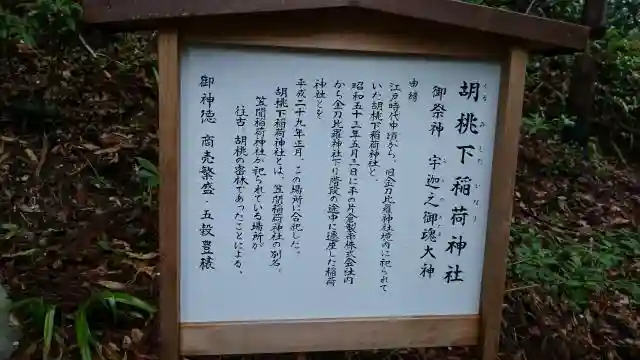 胡桃下稲荷神社
くるみしたいなり
御祭神 宇迦之御魂大神
由緒
江戸時代中頃から、旧金刀比羅神社境内に祀られて
いた胡桃下稲荷神社と、
昭和五十三年五月三日に平の片倉製糸株式会社内
から金刀比羅神社下り階段の途中に遷座した稲荷
神社とを
平成二十九年正月、この場所に合祀した。
胡桃下稲荷神社とは、笠間稲荷神社の別名。
笠間稲荷神社が祀られている場所が
往古、胡桃の密林であったことによる。
御神徳 商売繁盛・五穀豊穣